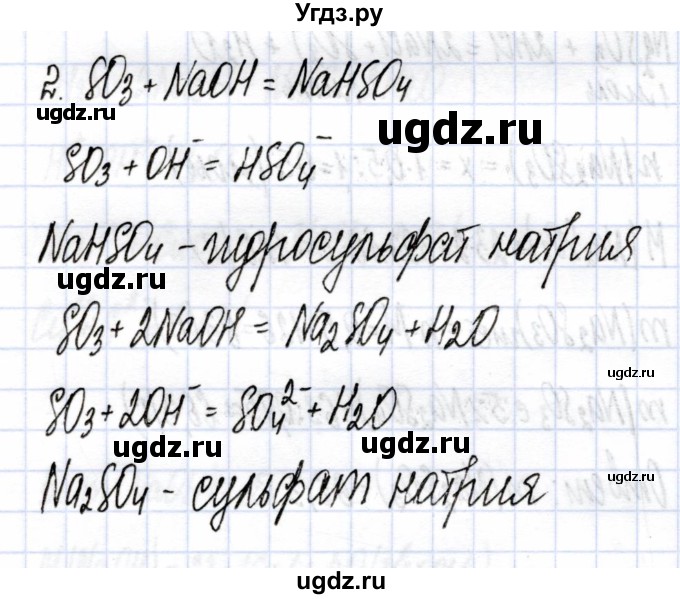 Угдз.ру
2. SO₃ + NaOH = NaHSO₄
ugdz.ru
ugdz.ru
SO₃ + OH⁻ = HSO₄⁻
NaHSO₄ - гидросульфат натрия
ugdz.ru
ugdz.ru
SO₃ + 2NaOH = Na₂SO₄ + H₂O
ugdz.ru
SO₃ + 2OH⁻ = SO₄²⁻ + H₂O
ugdz.ru
ugdz.ru
Na₂SO₄ - сульфат натрия
ugdz.ru
ugdz.ru